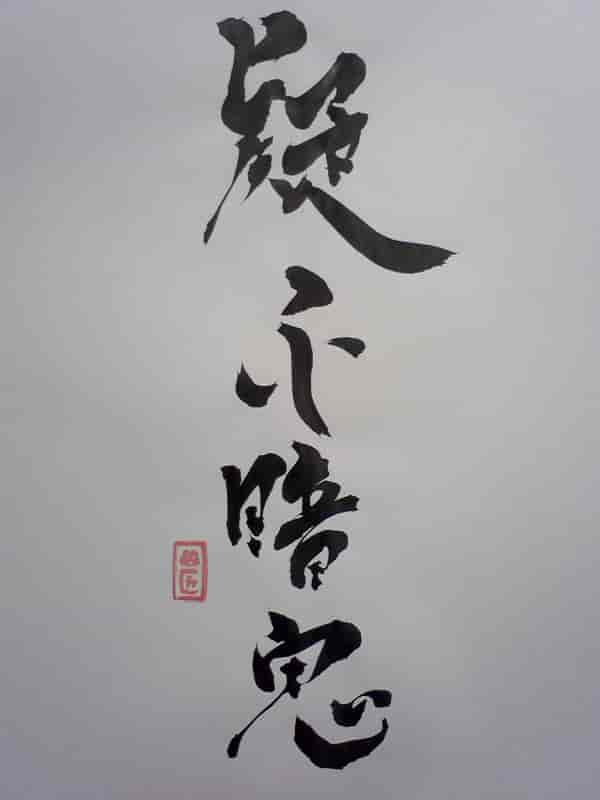 疑心暗鬼